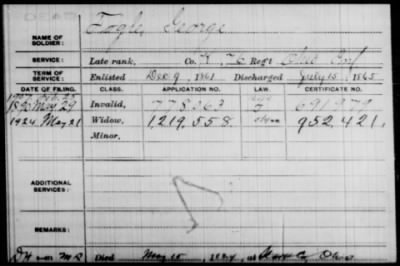 DEAD
NAME OF SOLDIER: Fogle, George
SERVICE: Late rank, Co. K, 76 Reg't Ohio Inf
TERM OF SERVICE: Enlisted Dec. 9, 1861 Discharged July 15, 1865
DATE OF FILING. CLASS. APPLICATION NO. LAW. CERTIFICATE NO.
May 29 Invalid, 778563 691979
1924 May 21 Widow, 1,219,558 952,421.
Minor,
ADDITIONAL SERVICES:
REMARKS:
Died May 15, 1924, at Ohio